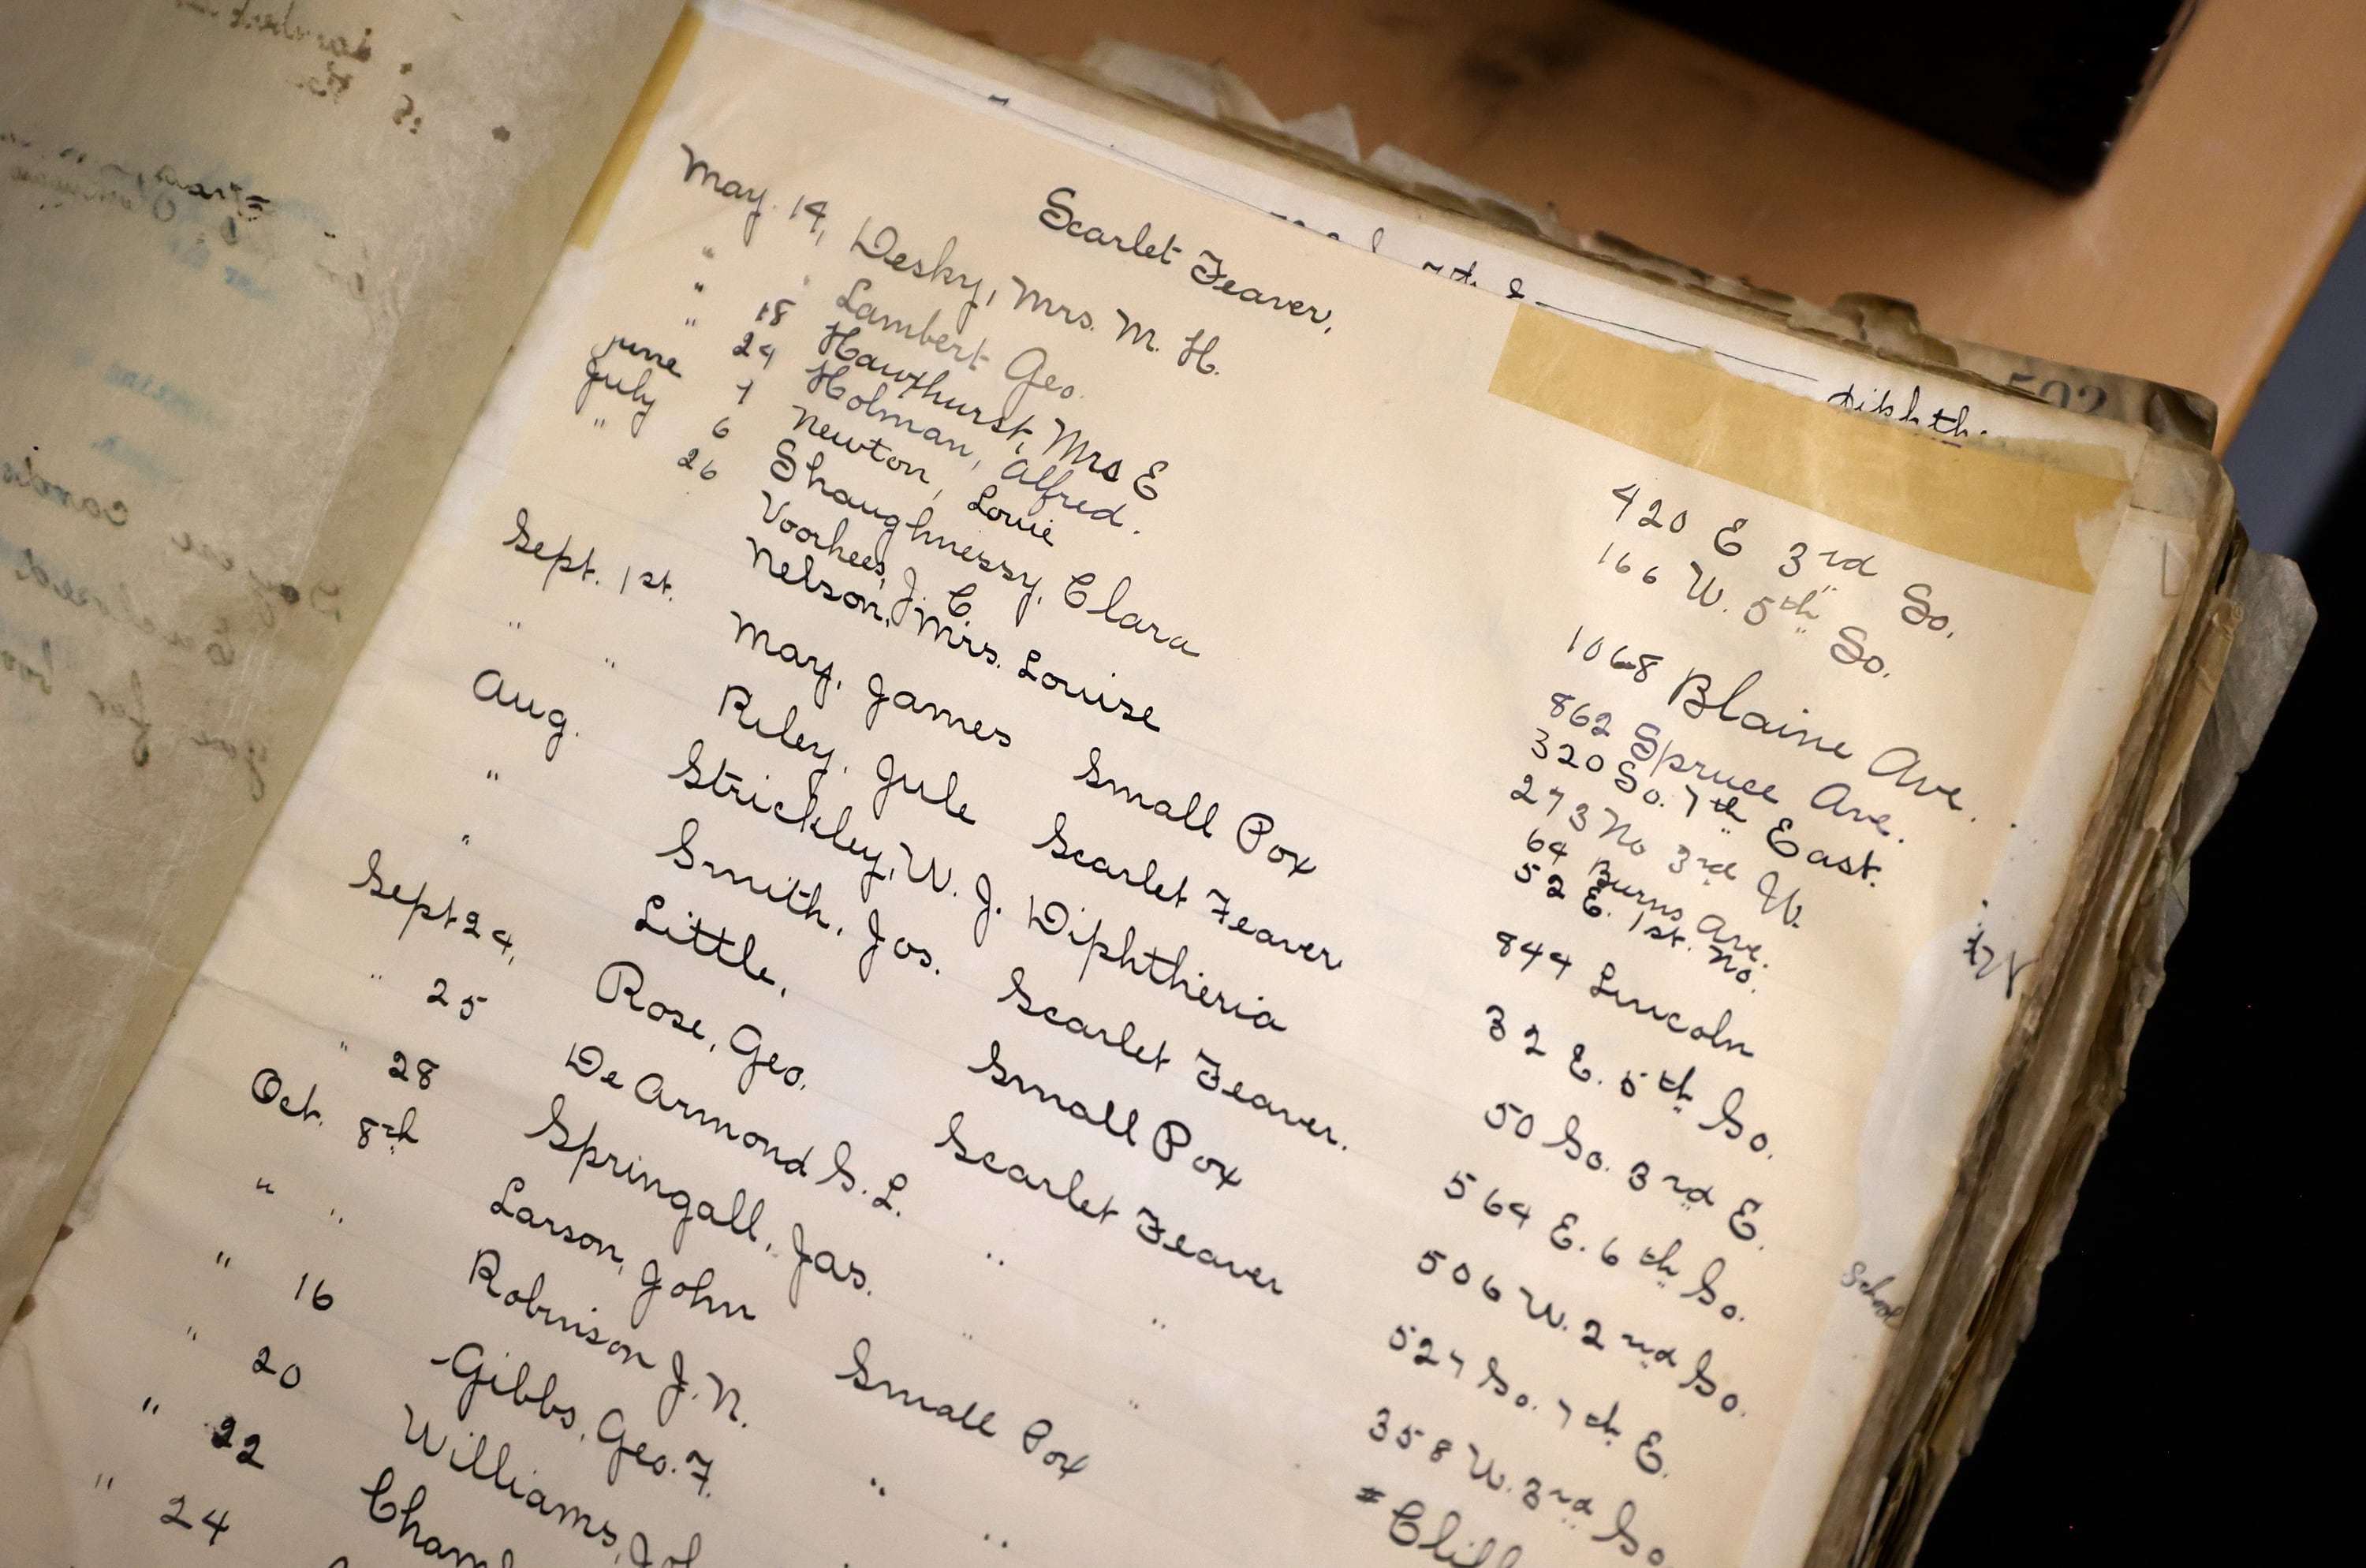 Scarlet Feaver,
May. 14, Desky, Mrs. M. H. 420 E 3rd So.
" " Lambert Geo. 166 W. 5th So.
" 18 Hawthurst, Mrs E 1068 Blaine Ave.
" 24 Holman, Alfred. 862 Spruce Ave.
June 7 Newton, Louie 320 So. 7th East.
July 6 Shaughnessy, Clara 273 No 3rd W.
" 26 Voorhees, J. C. 64 Burns Ave.
Nelson, Mrs. Louise 52 E. 1st. No.
Sept. 1st. May, James Small Pox 844 Lincoln
" " Riley, Jule Scarlet Feaver 32 E. 5th So.
Aug. Strickley, W. J. Diphtheria 50 So. 3rd E.
" Smith, Jos. Scarlet Feaver. 564 E. 6th So.
" Little, Small Pox 506 W. 2nd So.
Sept 24, Rose, Geo. Scarlet Feaver 527 So. 7th E.
" 25 De Armond S. L. " " 358 W. 3rd So.
" 28 Springall, Jas. " "
Oct. 8th Larson, John Small Pox
" " Robinson J. N. " "
" 16 Gibbs, Geo. F.
" 20 Williams, Joh
" 22 Cham
" 24
School
502